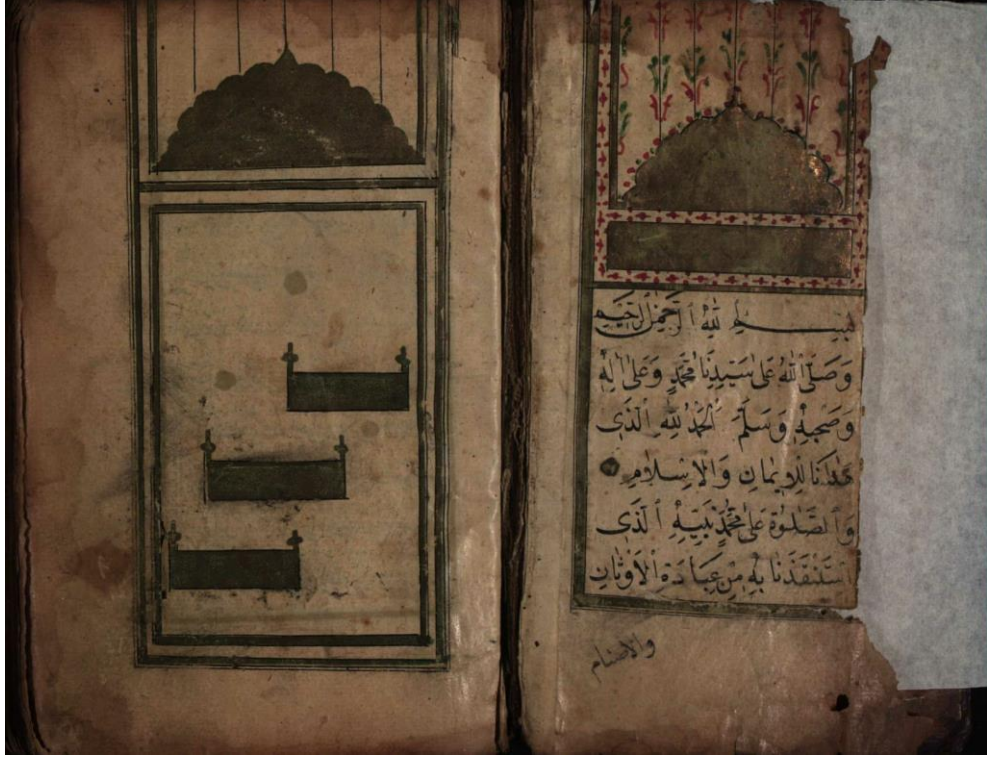 بِسْمِ اللهِ الرَّحْمٰنِ الرَّحِيْمِ
وَصَلَّى اللهُ عَلٰى سَيِّدِنَا مُحَمَّدٍ وَعَلٰى اٰلِهٖ
وَصَحْبِهٖ وَسَلَّمَ اَلْحَمْدُ لِلّٰهِ الَّذِى
هَدَانَا لِلْاِيْمَانِ وَالْاِسْلَامِ
وَالصَّلٰوةُ عَلٰى مُحَمَّدٍ نَبِيِّهِ الَّذِى
اسْتَنْقَذَنَا بِهٖ مِنْ عِبَادَةِ الْاَوْثَانِ
والاصنام